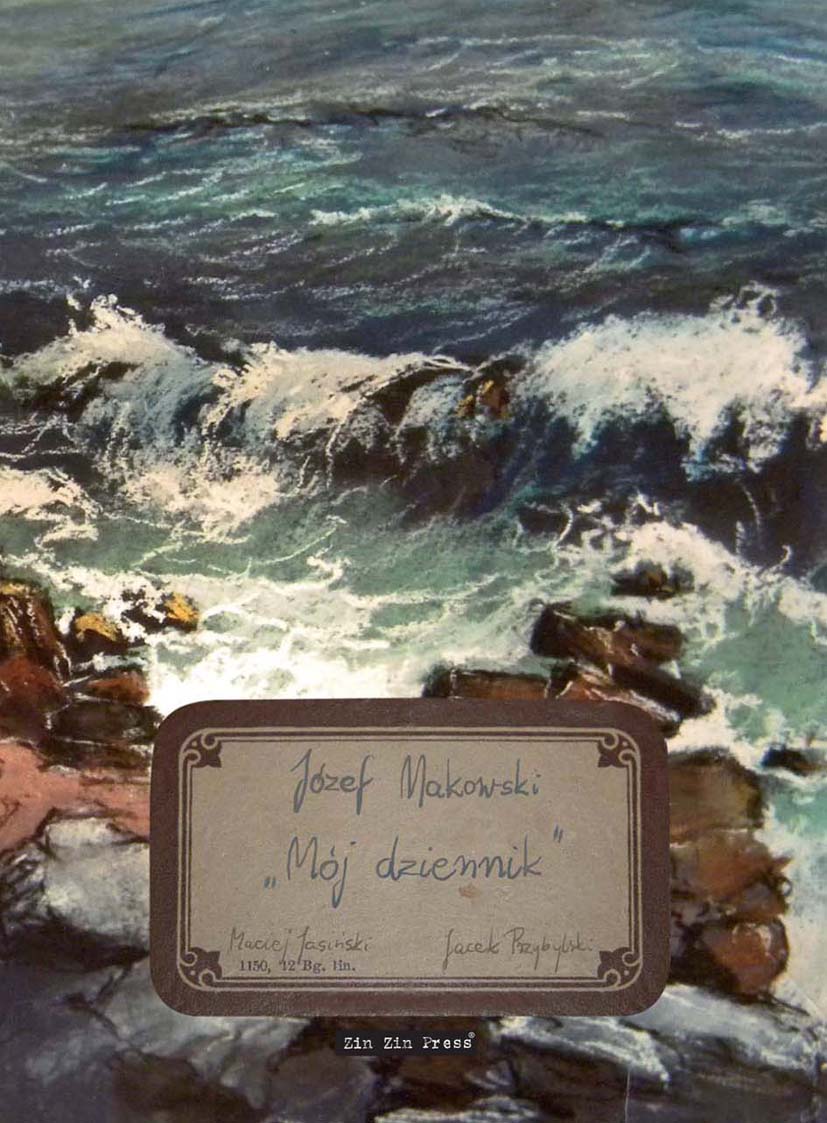 Józef Makowski
„Mój dziennik”
Maciej Jasiński Jacek Przybylski
1150, 12 Bg. lin.
Zin Zin Press®